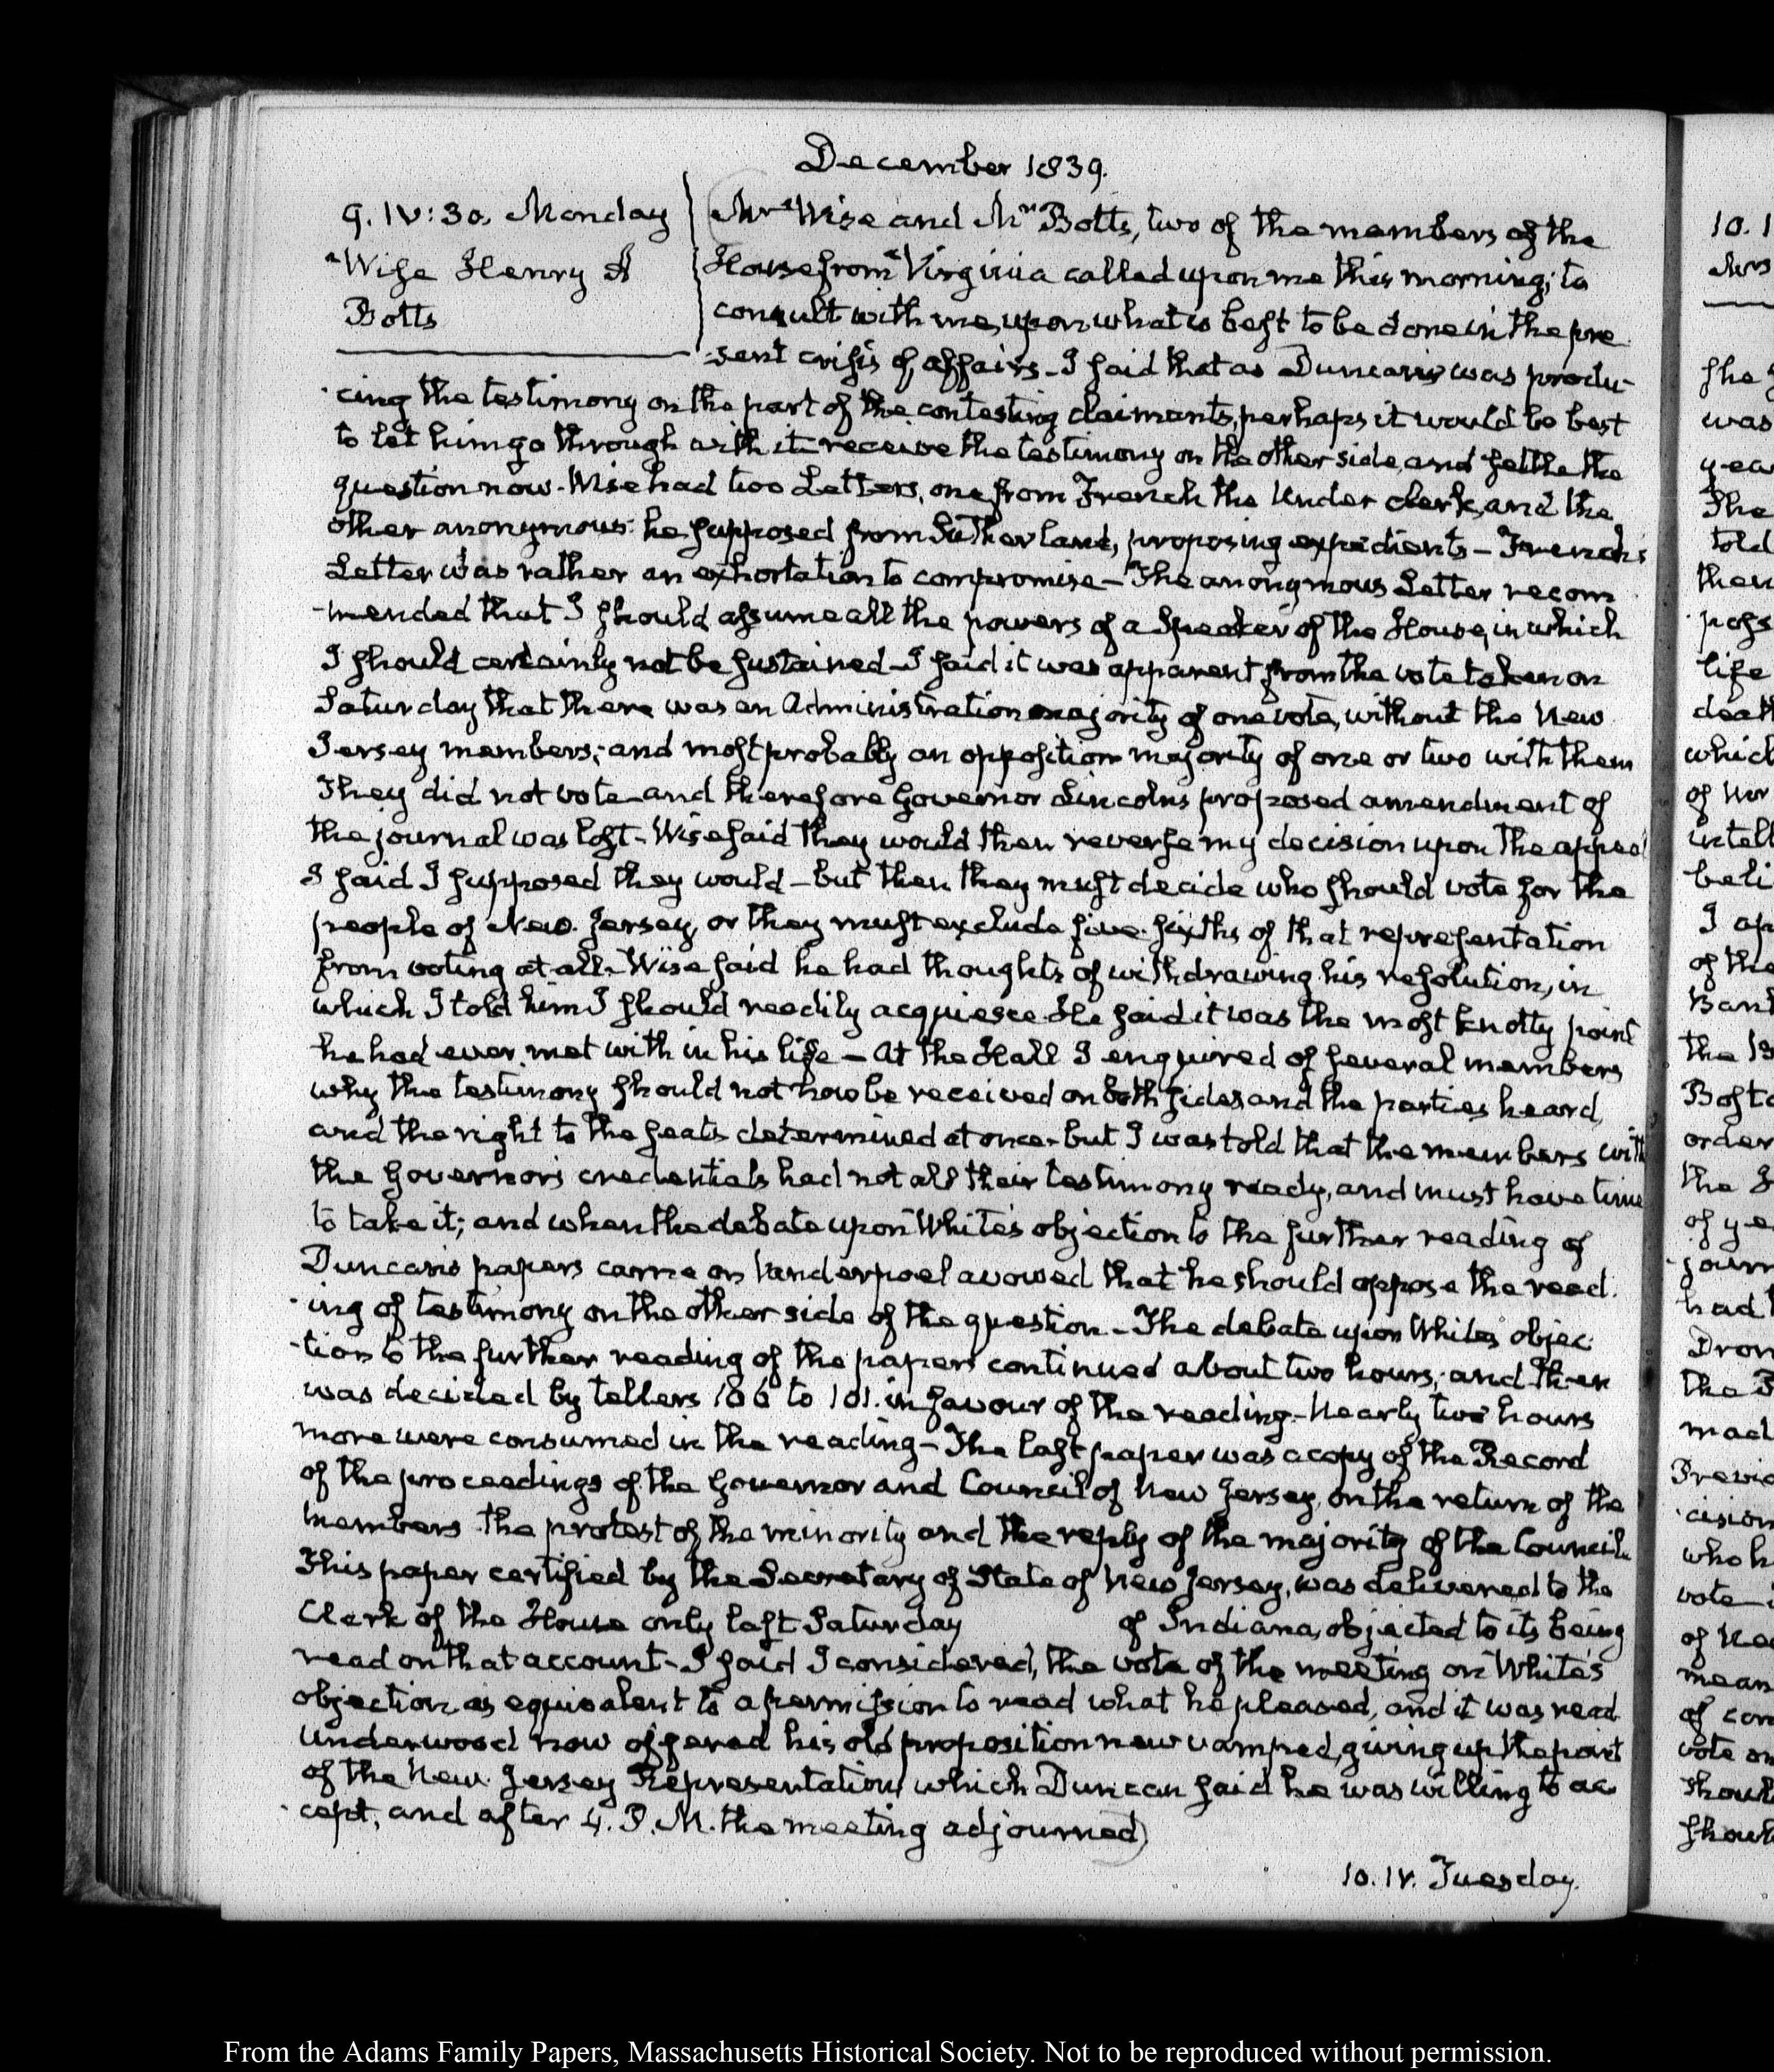 December 1839.
9. IV:30. Monday
Wise Henry A
Botts
Mr Wise and Mr Botts, two of the members of the
House from Virginia called upon me this morning; to
consult with me, upon what is best to be done in the pre
sent crisis of affairs - I said that as Duncan was produ-
cing the testimony on the part of the contesting claimants, perhaps it would be best
to let him go through with it receive the testimony on the other side, and settle the
question now. Wise had two Letters, one from French the Under clerk, and the
other anonymous he supposed from Sutherland, proposing expedients - French's
Letter was rather an exhortation to compromise - The anonymous Letter recom
-mended that I should assume all the powers of a Speaker of the House, in which
I should certainly not be sustained - I said it was apparent from the vote taken on
Saturday that there was an Administration majority of one vote, without the New
Jersey members; and most probably an opposition majority of one or two with them
They did not vote and therefore Governor Lincoln's proposed amendment of
the journal was lost - Wise said they would then reverse my decision upon the appeal
I said I supposed they would - but then they must decide who should vote for the
people of New Jersey, or they must exclude five sixths of that representation
from voting at all - Wise said he had thoughts of withdrawing his resolution, in
which I told him I should readily acquiesce He said it was the most knotty point
he had ever met with in his life - At the Hall I enquired of several members
why the testimony should not now be received on both sides and the parties heard,
and the right to the seats determined at once - but I was told that the members with
the Governor's credentials had not all their testimony ready, and must have time
to take it; and when the debate upon White's objection to the further reading of
Duncan's papers came on Vanderpoel avowed that he should oppose the read
-ing of testimony on the other side of the question - The debate upon White's objec
-tion to the further reading of the papers continued about two hours; and then
was decided by tellers 106 to 101. in favour of the reading - Nearly two hours
more were consumed in the reading - The last paper was a copy of the Record
of the proceedings of the Governor and Council of New Jersey, on the return of the
members the protest of the minority and the reply of the majority of the Council
This paper certified by the Secretary of State of New Jersey, was delivered to the
Clerk of the House only last Saturday of Indiana, objected to its being
read on that account - I said I considered, the vote of the meeting on White's
objection as equivalent to a permission to read what he pleased, and it was read
Underwood now offered his old proposition new vamped, giving up the part
of the New Jersey Representation, which Duncan said he was willing to ac
-cept, and after 4. P.M. the meeting adjourned)
10. IV. Tuesday.
From the Adams Family Papers, Massachusetts Historical Society. Not to be reproduced without permission.